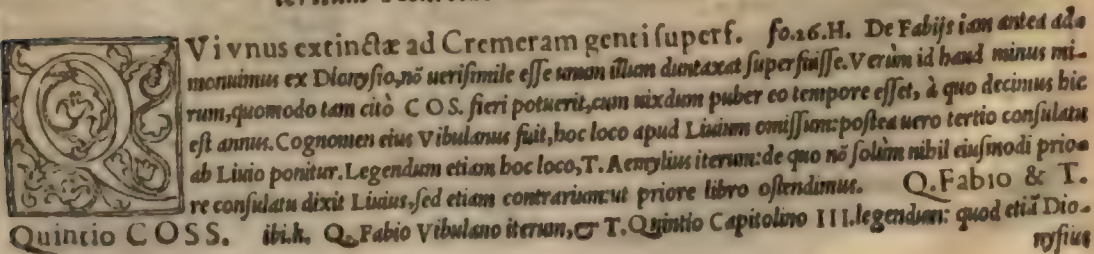 QVi vnus extinctæ ad Cremeram genti superf. fo.26.H. De Fabijs iam antea ad-
monuimus ex Dionysio, nõ uerisimile esse unum illum duntaxat superfuisse. Verùm id haud minus mi-
rum, quomodo tam citò COS. fieri potuerit, cum uixdum puber eo tempore esset, à quo decimus hic
est annus. Cognomen eius Vibulanus fuit, hoc loco apud Liuium omissum: postea uero tertio consulatu
ab Liuio ponitur. Legendum etiam hoc loco, T. Aemylius iterum: de quo nõ solùm nihil eiusmodi prio-
re consulatu dixit Liuius, sed etiam contrarium: ut priore libro ostendimus. Q. Fabio & T.
Quintio COSS. ibi.h. Q. Fabio Vibulano iterum, & T. Quintio Capitolino III. legendum: quod etiã Dio-
nysius